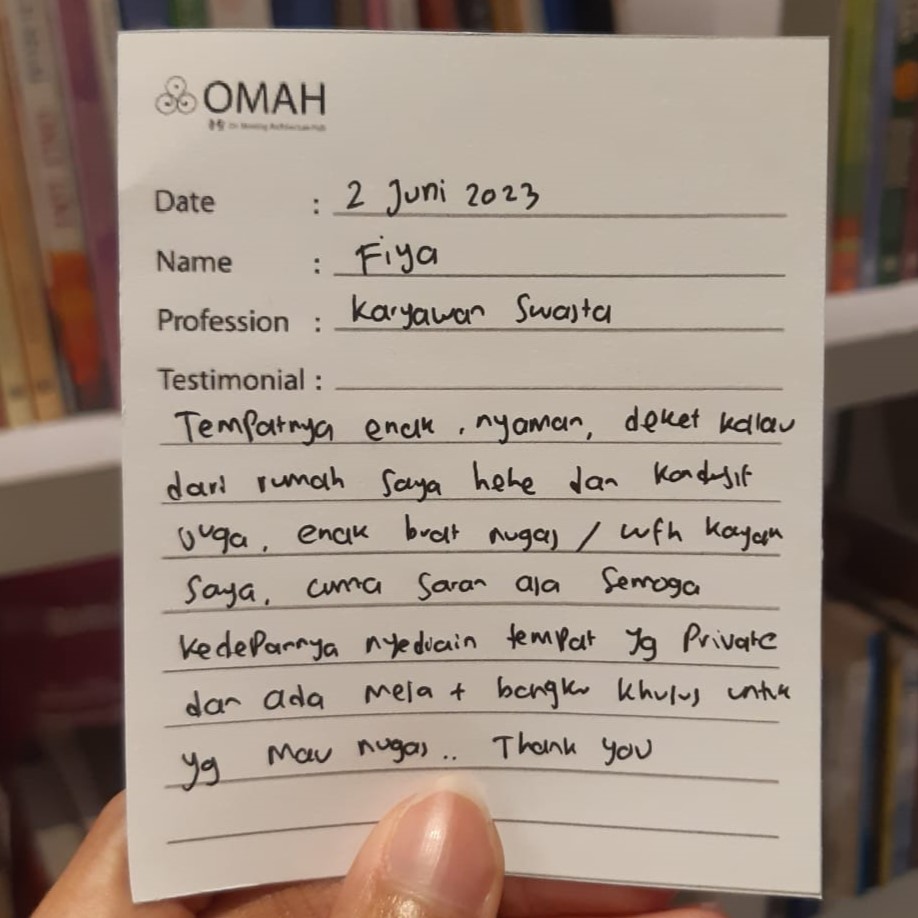 OMAH
Date : 2 Juni 2023
Name : Fiya
Profession : Karyawan Swasta
Testimonial :
Tempatnya enak, nyaman, deket kalau
dari rumah saya hehe dan kondusif
juga, enak buat nugas / wfh kayak
saya, cuma saran aja semoga
kedepannya nyediain tempat yg private
dan ada meja + bangku khusus untuk
yg mau nugas.. Thank you